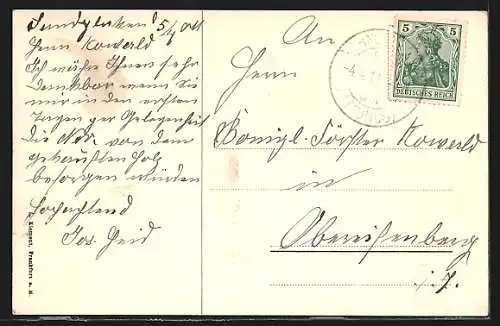 5/4 04
Herrn Kowerld
Ich wäre Ihnen sehr
dankbar wenn Sie
mir in den ersten
Tagen per Gelegenheit
die Ndr. von dem
gekauften Holz
besorgen würden
Hochachtend
Jos. Heid
An
Herrn
Königl. Förster Kowerld
in
Obereisenberg
5 5
DEUTSCHES REICH
Frankfurt a. M.